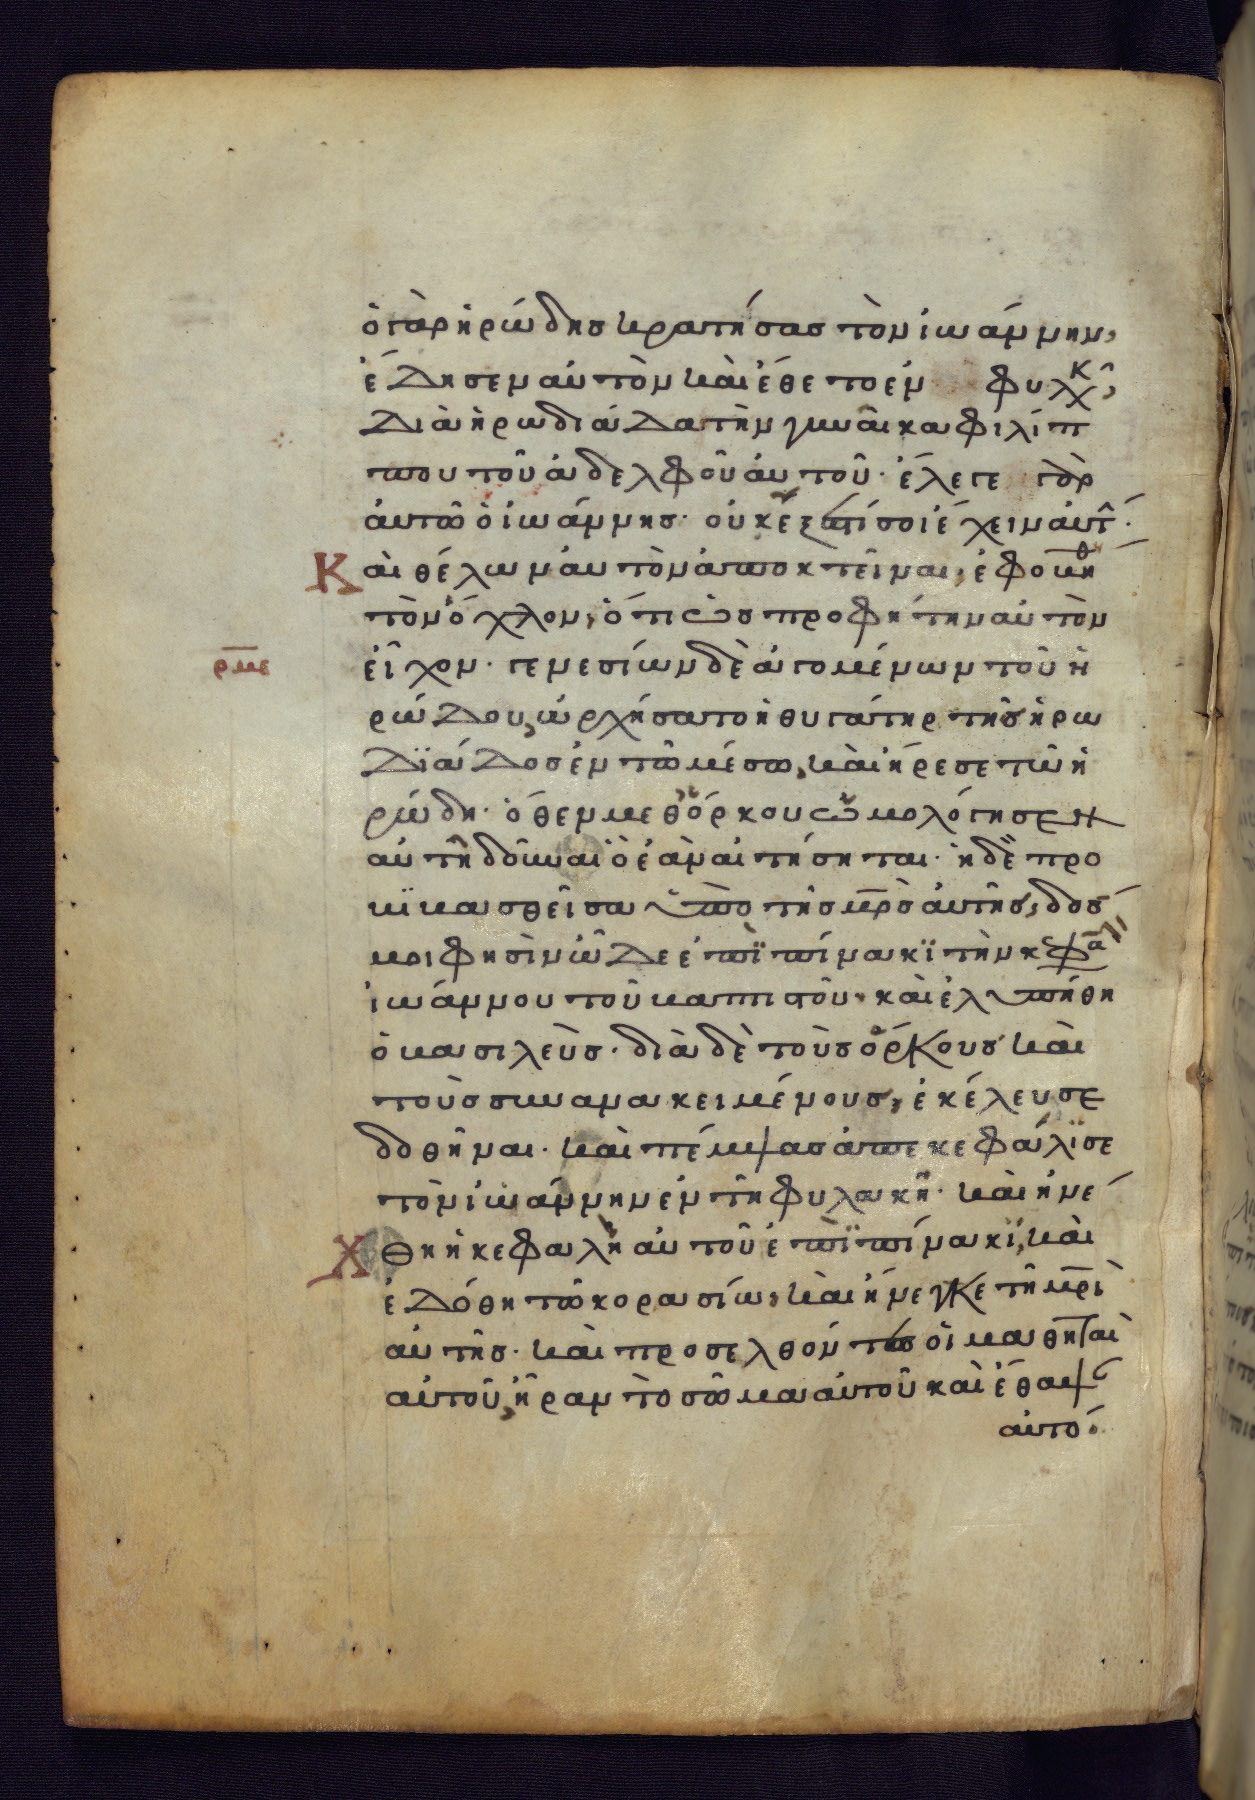 ὁ γὰρ ἡρώδησ κρατήσασ τὸν ἰωάννην,
ἔδησεν αὐτὸν καὶ ἔθετο ἐν φυλκ̑,
διὰ ἡρωδιάδα τὴν γυναῖκα φιλίπ
που τοῦ ἀδελφοῦ αὐτοῦ· ἔλεγε γὰρ
αὐτῶ ὁ ἰωάννησ· οὐκ ἔξεστί σοι ἔχειν αὐτ́·
Καὶ θέλων αὐτὸν ἀποκτεῖναι, ἐφοβήθη
τὸν ὄχλον, ὅτι ὡσ προφήτην αὐτὸν
ρμε εἶχον· γενεσίων δὲ ἀγομένων τοῦ ἡ
ρώδου, ὠρχήσατο ἡ θυγάτηρ τῆσ ἡρω
διάδοσ ἐν τῶ μέσω, καὶ ἤρεσε τῶ ἡ
ρώδη· ὅθεν μεθ ὅρκου ὡμολόγησεν
αὐτῆ δοῦναι ὃ ἐὰν αἰτήσηται· ἡ δὲ προ
βϊβασθεῖσα ὑπὸ τῆσ μρ̅ὸσ αὐτῆσ, δόσ
μοι φησὶν ὧδε ἐπῒ πίνακϊ τὴν κεφα
ἰωάννου τοῦ βαπτιστοῦ· καὶ ἐλυπήθη
ὁ βασιλεὺσ· διὰ δὲ τοὺσ ὅρκουσ καὶ
τοὺσ συνανακειμένουσ, ἐκέλευσε
δοθῆναι· καὶ πέμψασ ἀπεκεφάλϊσε
τὸν ἰωάννην ἐν τῆ φυλακῆ· καὶ ἠνέ
Χθη ἡ κεφαλὴ αὐτοῦ ἐπῒ πίνακϊ, καὶ
ἐδόθη τῶ κορασίω, καὶ ἤνεγκε τῆ μρ̅ὶ
αὐτῆσ· καὶ προσελθόντεσ οἱ μαθηταὶ
αὐτοῦ, ἦραν τὸ σῶμα αὐτοῦ καὶ ἔθαψ
αὐτό·